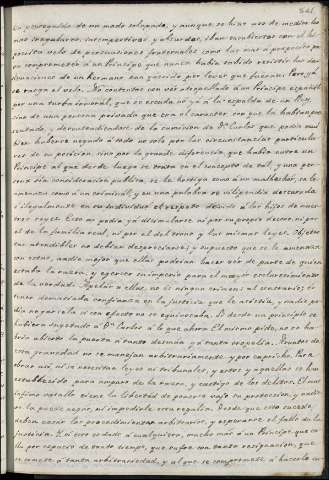 y perseguido de un modo solapado, y aunque se hizo uso de medios los
mas irregulares, intempestivos, y ali iban encubiertos con el hi-
pocrita velo de persuaciones fraternales como las mas a proposito pa-
ra comprometer a un Principe que nunca habia sabido resistir las
de un hermano tan querido por lever que fuesen: Pero, ya
se rasgo el velo. No contentos con ver atropellado a un Principe español
por una turba inmoral, que se escuda no ya a la espalda de un Rey,
sino de una persona privada que con el caracter con que la habian pre-
sentado, y desentendiendose de la cuestion de Dn Carlos que podia muy
bien haberse negado a todo no solo por las circunstancias particula-
res de su posicion, sino por la grande diferencia que habia entre un
Principe al que desde luego se tenia en el concepto de tal, y una per-
sona sin consideracion publica, se le hostiga como a un malhechor, se le
amenaza como a un criminal, y en una palabra se vilipendia descarada
e ilegalmente en su individuo el respeto debido a los hijos de nues-
tros reyes. Esto no podia ya disimularse ni por su propio decoro, ni por
el de la familia real, ni por el del trono y las mismas leyes. Objetos
tan atendibles no debian despreciarse; y supuesto que se le amenazaba
con estas, nadie mejor que ellas podrian hacer ver de parte de quien
estaba la razon, y egercer su imperio para el mayor esclarecimiento
de la verdad. Apelar a ellas, no es ningun crimen: al contrario, es
tener demasiada confianza en la justicia que le asistia, y nadie po-
dia negarsela si con efecto no se equivocaba. Si desde un principio se
hubiera sugetado a Dn Carlos a lo que ahora el mismo pide, no se ha-
bria abierto la puerta a tanto desman y a tanta tropelia. Puntos de
esta gravedad no se manejan arbitrariamente y por capricho. Para
obrar asi, ni se necesitan leyes ni tribunales, y estos y aquellas se han
establecido para amparo de la razon, y castigo de los delitos. El mas
infimo vasallo tiene la libertad de ponerse bajo su proteccion, y nadie
se la puede negar, ni impedirle esta regalia. Desde que esto sucede,
deben cesar los procedimientos arbitrarios, y esperarse el fallo de la
justicia. Si esto es dado a cualquiera, mucho mas a un Principe que ca-
lla por espacio de tanto tiempo, que sufre con tanta resignacion, que
se somete a tanta arbitrariedad, y al que se compromete a hacerlo en